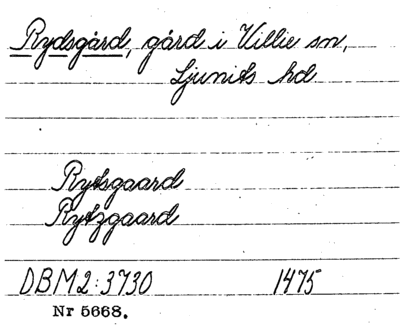 Rydsgård, gård i Villie sn,
Ljunits hd
Rytsgaard
Rytzgaard
DBM 2:3730 1475
Nr 5668.